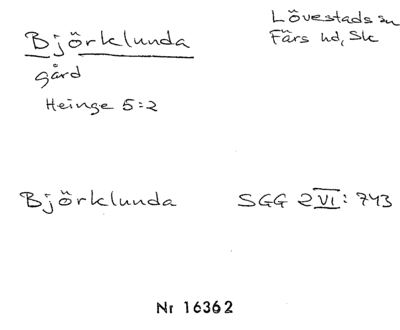 Björklunda
gård
Heinge 5:2
Lövestads sn
Färs hd, Sk
Björklunda SGG 2 VI: 743
Nr 16362